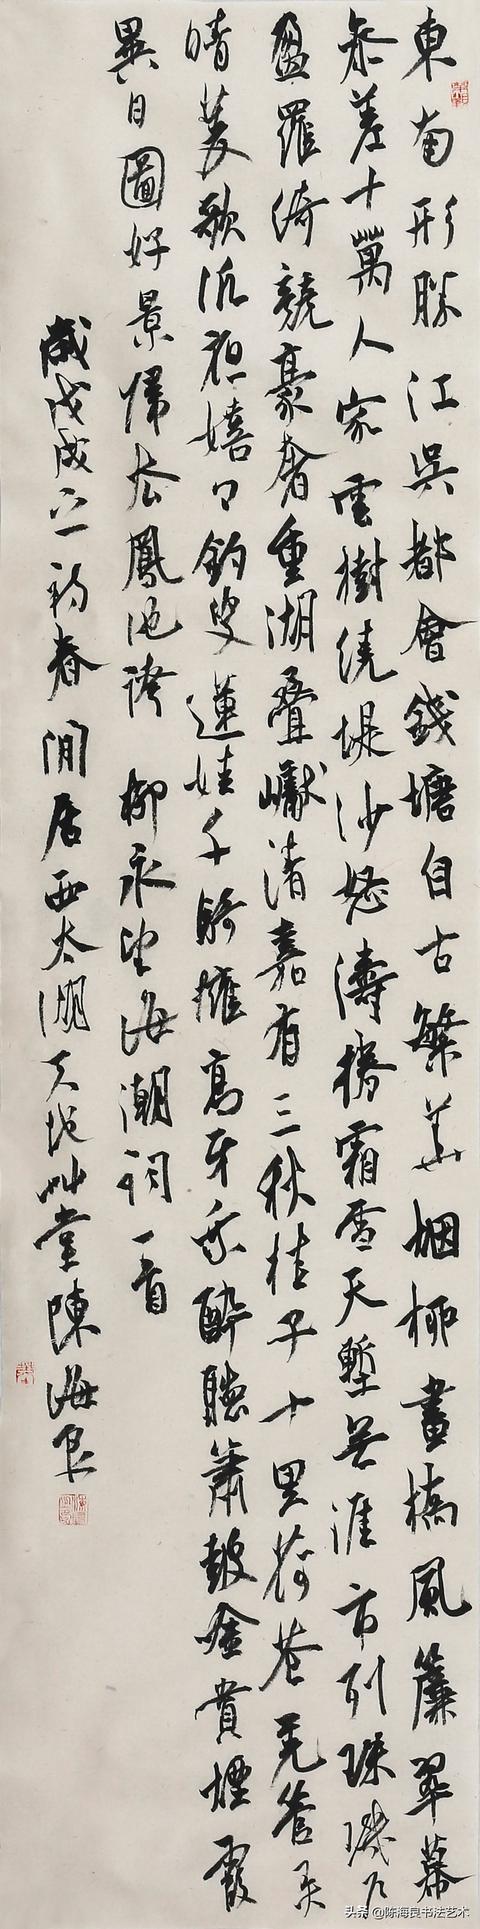 東南形勝江吳都會錢塘自古繁華烟柳畫橋風簾翠幕
參差十萬人家雲樹繞堤沙怒濤捲霜雪天塹無涯市列珠璣戶
盈羅綺競豪奢重湖疊巘清嘉有三秋桂子十里荷花羌管弄
晴菱歌泛夜嬉々釣叟蓮娃千騎擁高牙乘醉聽簫鼓吟賞煙霞
異日圖好景歸去鳳池誇 柳永望海潮詞一首
歲戊戌之初春閒居西太湖天地艸堂陳海良
头条 @陈海良书法艺术